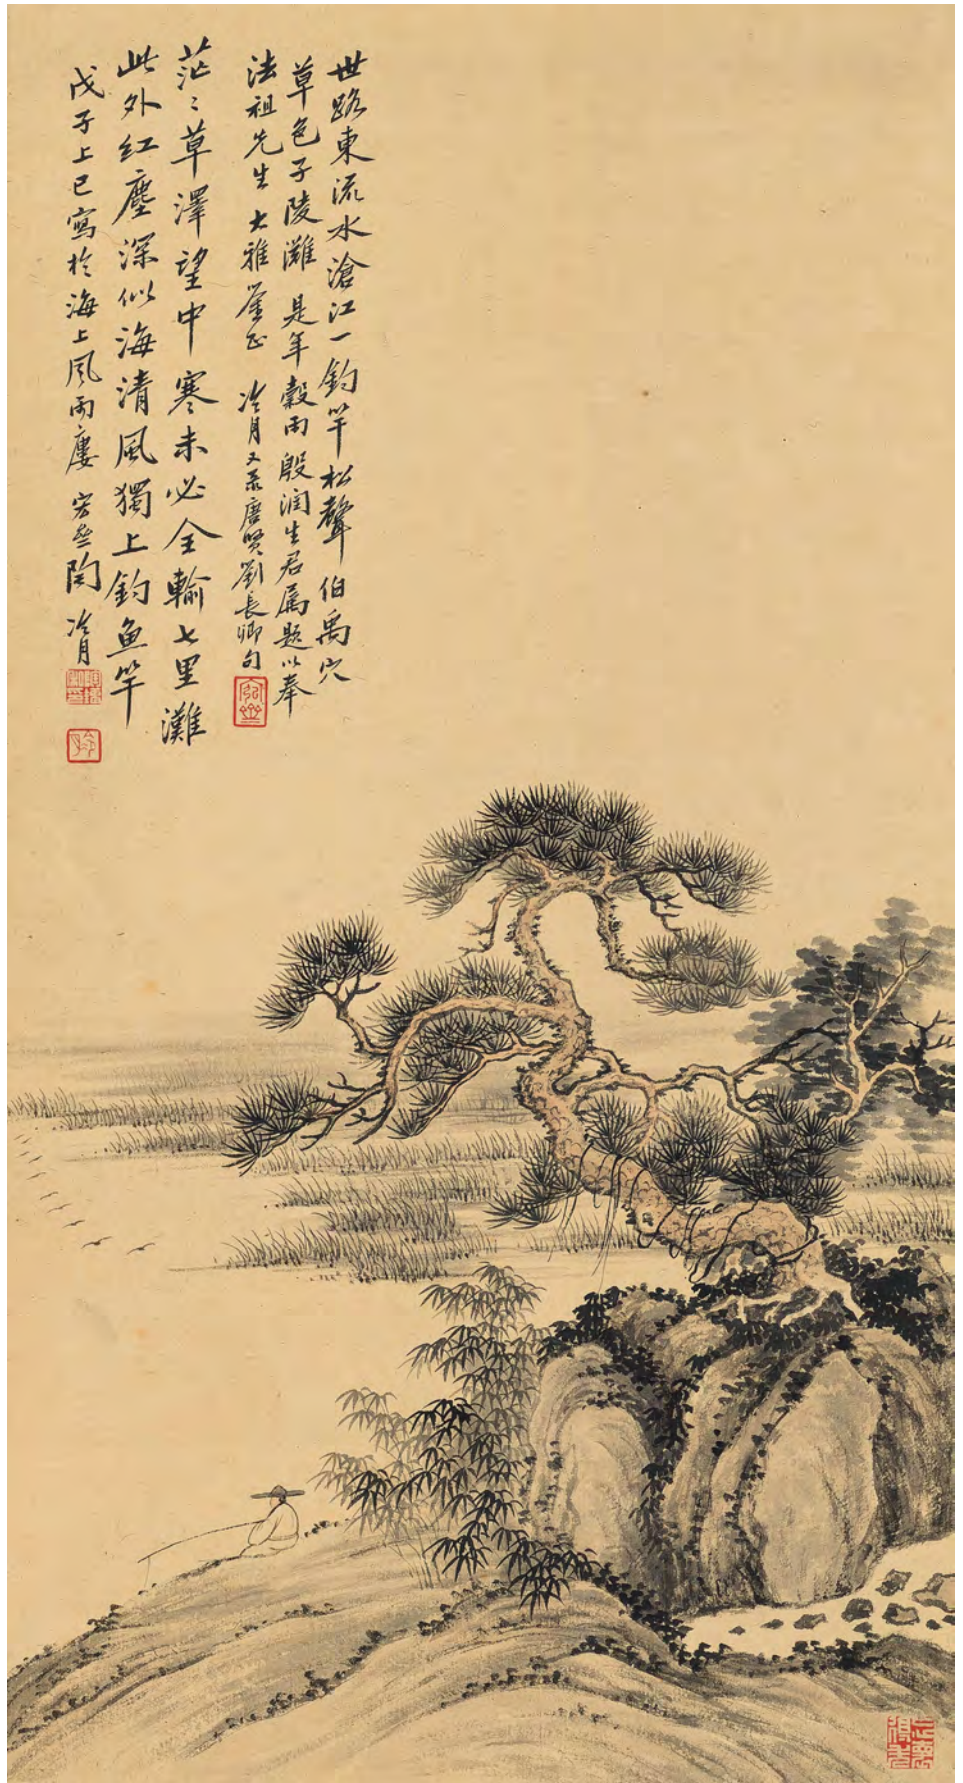 世路東流水滄江一釣竿松聲伯禹穴
草色子陵灘 是年穀雨殷潤生君屬題以奉
法祖先生大雅鑒正 冷月又录唐贤劉長卿句
茫々草澤望中寒未必全輸七里灘
此外红塵深似海清風獨上釣鱼竿
戊子上巳寫於海上風雨廔 宏斋陶冷月